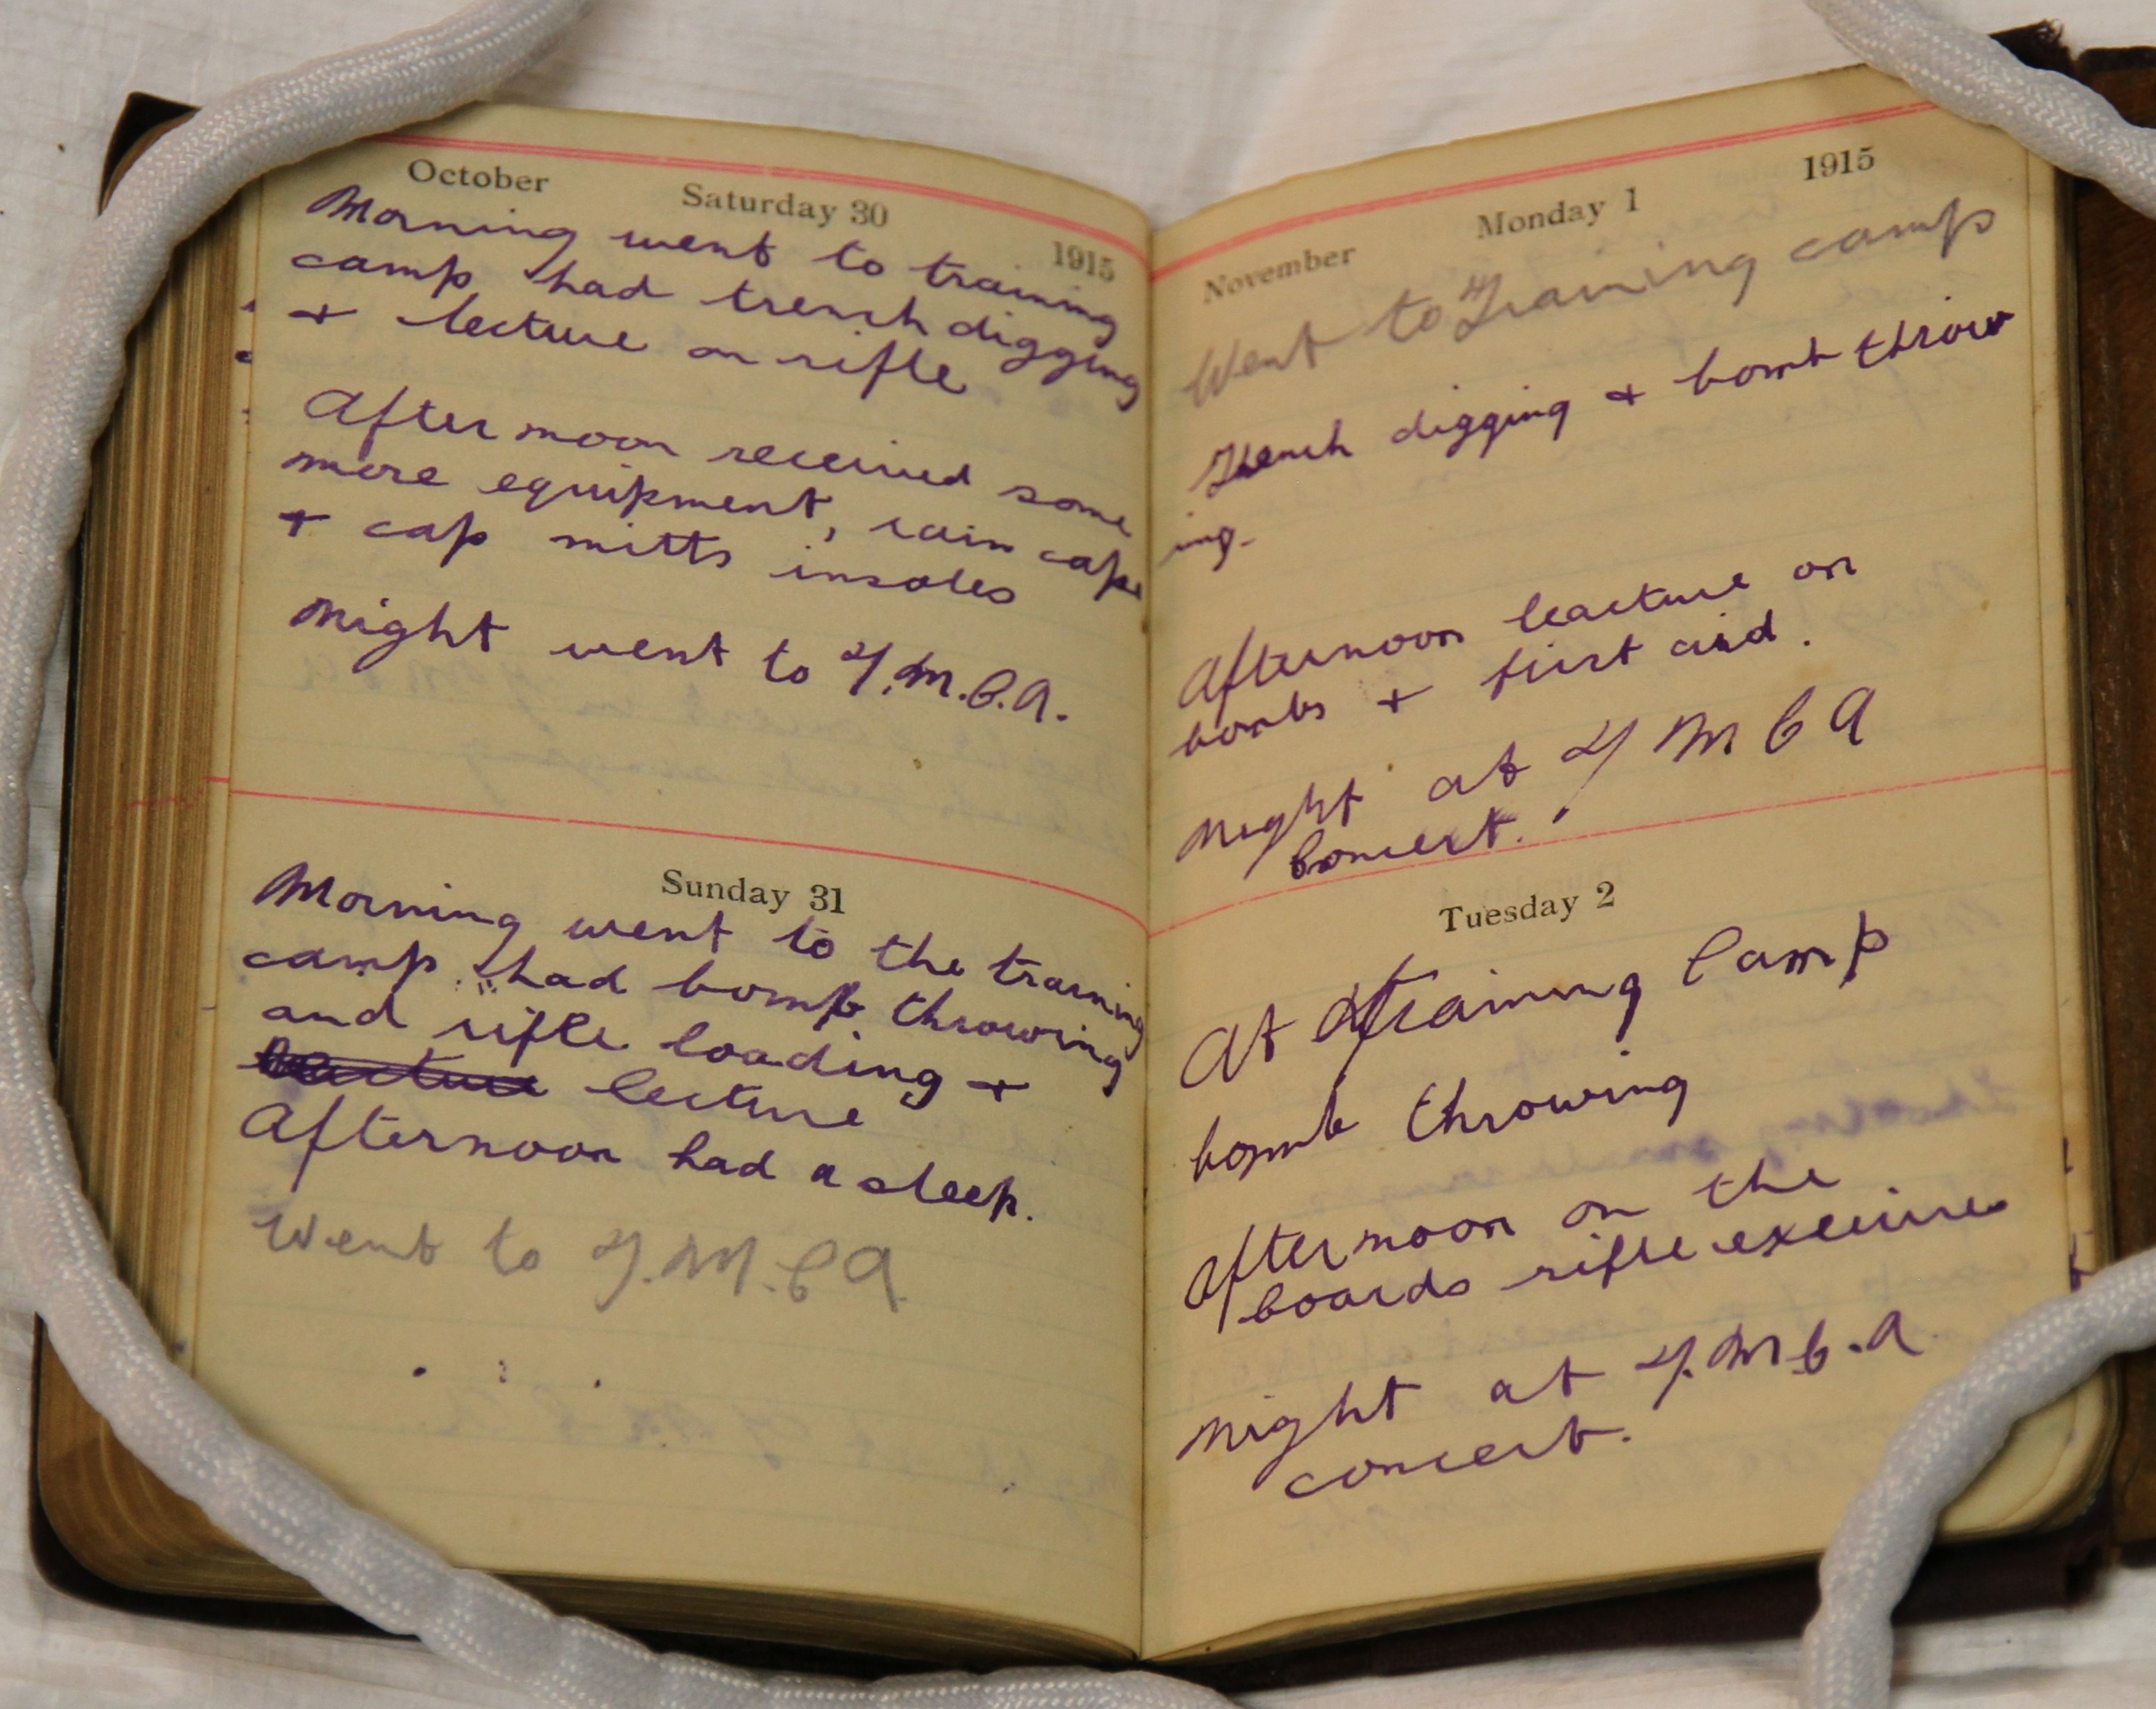 October
Saturday 30
1915
Morning went to training
camp had trench digging
+ lecture on rifle
Afternoon received some
more equipment, rain cape
+ cap mitts insoles
Night went to Y.M.C.A.
Sunday 31
Morning went to the training
camp had bomb throwing
and rifle loading +
leacture lecture
Afternoon had a sleep.
Went to Y.M.C A
November
Monday 1
1915
Went to Training camp
Trench digging + bomb throw
ing.
Afternoon leacture on
bombs + first aid.
Night at Y M C A
Concert.
Tuesday 2
At Training Camp
bomb throwing
Afternoon on the
boards rifle exercises
Night at Y.M.C.A
concert.